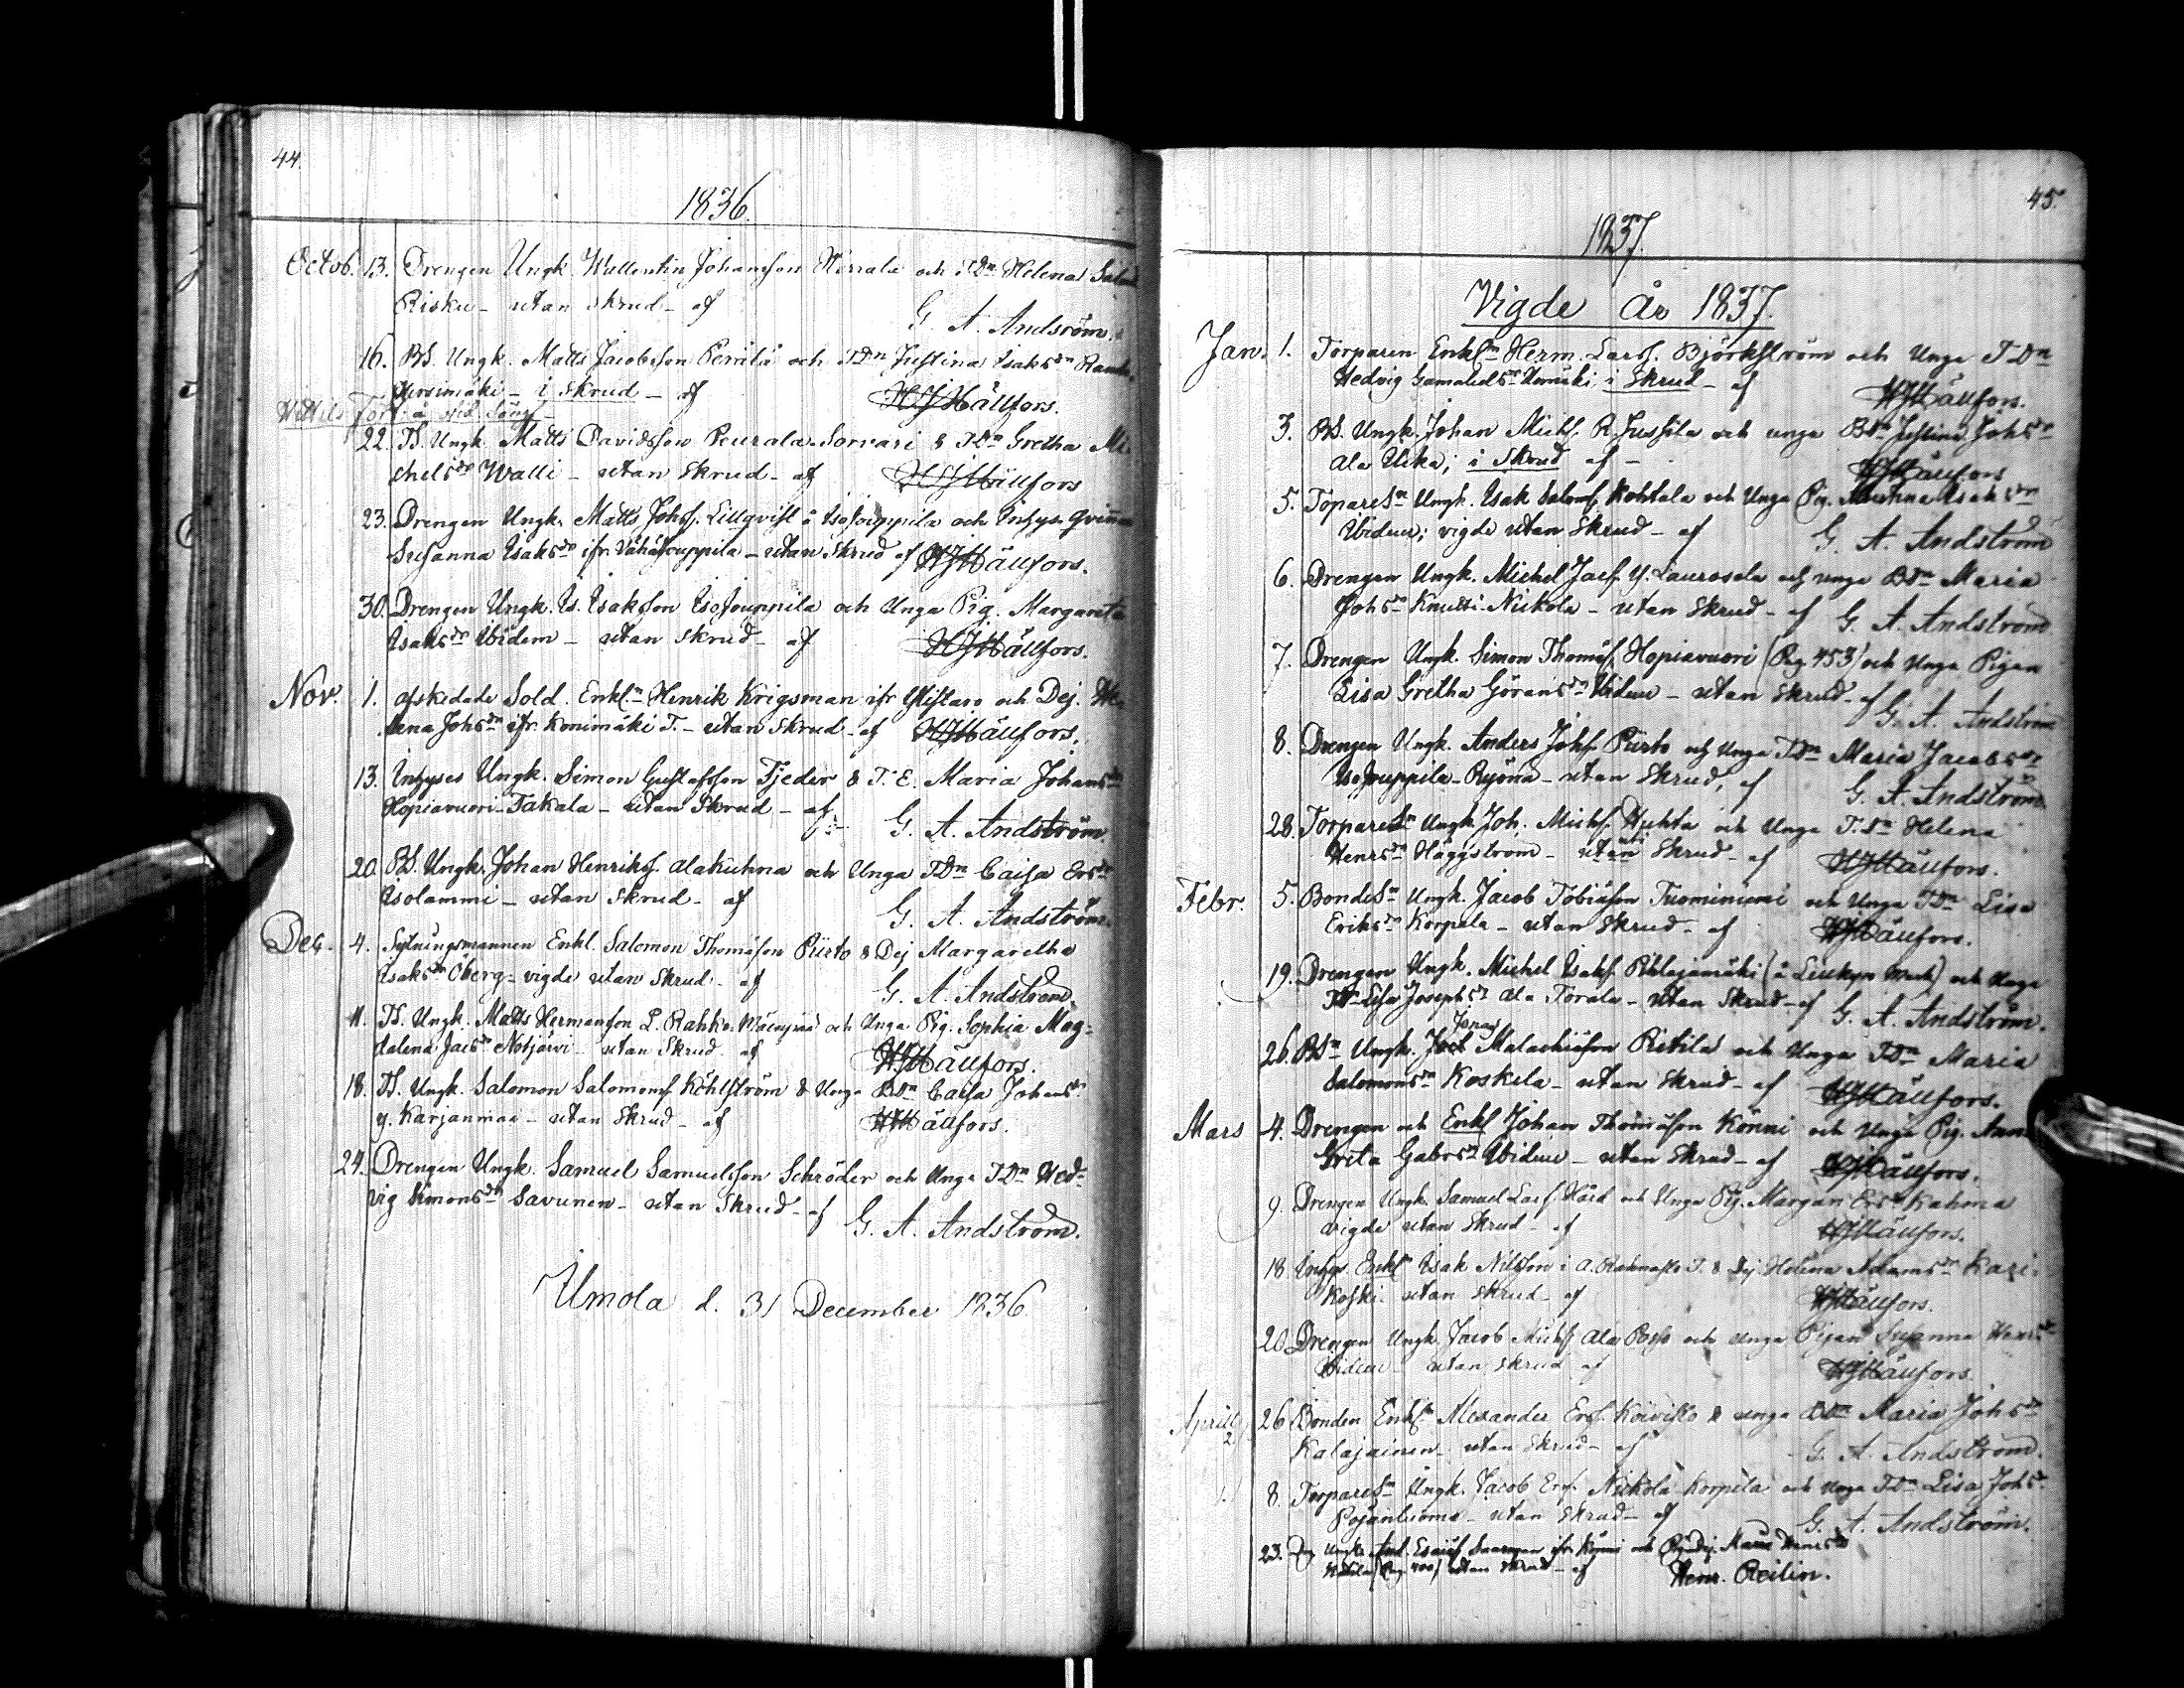 44.
1836.
Octob. 13. Drengen Ungk. Wallentin Johansson Herrala och TDn Helena
Risku - utan skrud - af
G. A. Andström.
16. BS. Ungk. Matts Jacobsson Perrilä och TDn Justina Isaksdr
i skrud - af HJHällfors.
22. TS. Ungk. Matts Davidsson Peurala-Sorvari & TDn Gretha Mi-
chelsdr Walli - utan skrud - af HJHällfors
23. Drengen Ungk. Matts Johss. Lillqvist å Isojouppila och Inhys. qvinnan
Susanna Isaksdr ifr. Vähäjouppila - utan skrud af HJHällfors.
30. Drengen Ungk. Is. Isaksson Isojouppila och Unga Pig. Margareta
Isaksdr Ibidem - utan skrud - af HJHällfors.
Nov. 1. afskedade Sold. Enkl.n Henrik Krigsman ifr Ylistaro och Dej. He-
lena Johsdr ifr. Konimäki T. - utan skrud - af HJHällfors.
13. Inhyses Ungk. Simon Gustafsson Tjeder & T. E. Maria Johansdr
Hopiavuori-Takala - utan skrud - af
G. A. Andström.
20. BS. Ungk. Johan Henrikss. Alakuhna och Unga TDn Caisa Ersdr
Isolammi - utan skrud - af
G. A. Andström.
Dec. 4. Sytningsmannen Enkl. Salomon Thomasson Piirto & Dej Margaretha
Isaksdr Öberg - vigde utan skrud - af
G. A. Andström.
11. TS. Ungk. Matts Hermansson L. Rahko och Unga Pig. Sophia Mag-
dalena Jacsdr Notjärvi - utan skrud - af HJHällfors.
18. TS. Ungk. Salomon Salomonss Köhlström & Unga BDn Caisa Johansdr
y. Karjanmaa - utan skrud - af HJHällfors.
24. Drengen Ungk. Samuel Samuelsson Schröder och Unga TDn Hed-
vig Simonsdr Savunen - utan skrud - af
G. A. Andström.
Ilmola d. 31 December 1836
45.
1837.
Vigde År 1837.
Jan. 1. Torparen Enkl.n Herm. Larss. Björkström och Unga TDn
Hedvig Gamalielsdr i skrud - af HJHällfors.
3. BS. Ungk. Johan Michs. R. Jussila och unga BDn Justina Johsdr
Ala Uka; i skrud af - HJHällfors
5. TorpareSn Ungk. Isak Saloms. Kohtala och Unga Pig. Isaksdr
Ibidem; vigde utan skrud - af G. A. Andström
6. Drengen Ungk. Michel Jacs. Y. Laurosela och unga BDn Maria
Johsdr Knutti-Niskola - utan skrud - af G. A. Andström
7. Drengen Ungk. Simon Thomass. Hopiavuori (Pag 453) och Unga Pigan
Lisa Gretha Göransdr Ibidem - utan skrud - af
G. A. Andström
8. Drengen Ungk. Anders Johss. Piirto och Unga TDn Maria Jacobsdr
Isojouppila-Ryönä - utan skrud, af
G. A. Andström.
28. TorpareSn Ungk. Joh. Michs. Huhta och Unga T.Dn Helena
Henrsdr Häggström - utan skrud - af HJHällfors.
Febr. 5. BondeSn Ungk. Jacob Tobiasson Tuominiemi och Unga TDn Lisa
Eriksdr Korpela - utan skrud - af HJHällfors.
19. Drengen Ungk. Michel Isaks. Pihlajamäki och Unga
TDn Lisa Josephsdr Ala Torala - utan skrud - af G. A. Andström.
Jonas
26. BSn Ungk. Malachiasson Ritila och Unga TDn Maria
Salomonsdr Koskela - utan skrud - af HJHällfors.
Mars 4. Drengen och Enkl Johan Thomasson Könni och Unga Pig. Anna
Greta Gabrsdr Ibidem - utan skrud - af HJHällfors.
9. Drengen Ungk. Samuel Hård och Unga Pig. Margar. Ersdr Kahma
vigde utan skrud - af HJHällfors.
18. Inhys Enkl Isak Nilsson i T. & Dej. Helena Adamsdr Kari-
koski - utan skrud - af HJHällfors.
20. Drengen Ungk. Jacob Michs. Ala och Unga Pigan Susanna Henrsdr
Ibidem - utan skrud af HJHällfors.
April 2. 26. Bonden Enkl.n Alexander Ers. Koivisto & unga BDn Maria Johsdr
Kalajainen - utan skrud - af G. A. Andström.
8. TorpareSn Ungk. Jacob Ers. Niskola Korpela och Unga TDn Lisa Johsdr
Pojanluoma - utan skrud - af G. A. Andström.
23. Ungk. Esaiass Saarenpää ifr. Könni och Maria Henrsdr
utan skrud - af Henr. Reilin.